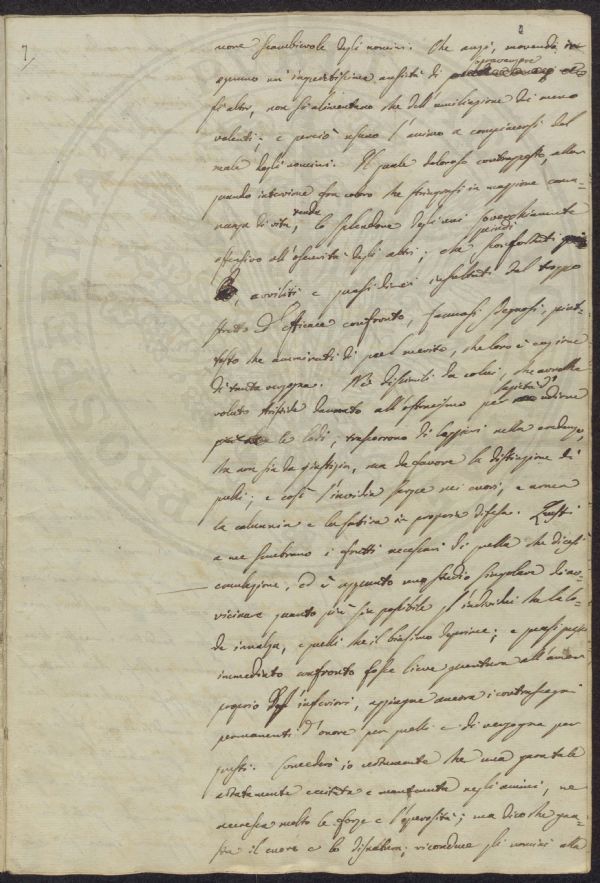 7
more scambievole degli uomini. Che anzi, movendo in
ognuno un' inquietissima ansietà di sopravanzare
gl' altri, non si alimentano che dell' umiliazione dei meno
valenti; e perciò usano l' animo a compiacersi del
male degli uomini. Il quale doloroso contrapposto, allor
quando interviene fra coloro che stringonsi in maggiore comu-
nanza di vita, rende lo splendore degli uni soverchiamente
offensivo all' oscurità degli altri; che sconfortati quindi
, avviliti e quasi direi insultati dal troppo
stretto ed efficace confronto, fannosi sdegnosi, piut-
tosto che ammirati di quel merito, che loro è cagione
di tanta vergogna. Nè dissimili da colui, che avrebbe
voluto Aristide dannato all' ostracismo per sazietà d' udirne
le lodi, trascorrono di leggieri nella credenza,
che non sia da giustizia, ma da favore la distinzione di
quelli; e così l' invidia sorge nei cuori, e arma
la calunnia e la satira in propria difesa. Questi
a me sembrano i frutti necessari di quella che dicesi
emulazione, ed è appunto uno studio singolare di av-
vicinare quanto più sia possibile gl' individui che la lo-
de innalza, e quelli che il biasimo deprime; e quasi
immediato confronto fosse lieve puntura all' amor
proprio degl' inferiori, aggiugne ancora i contrassegni
permanenti d' onore per quelli e di vergogna per
questi. Concederò io certamente che una gara tale
destramente eccitata e mantenuta negli animi, ne
accresca molto le forze e l' operosità; ma dico che gua-
sta il cuore e lo disnatura; riconduce gli uomini alla